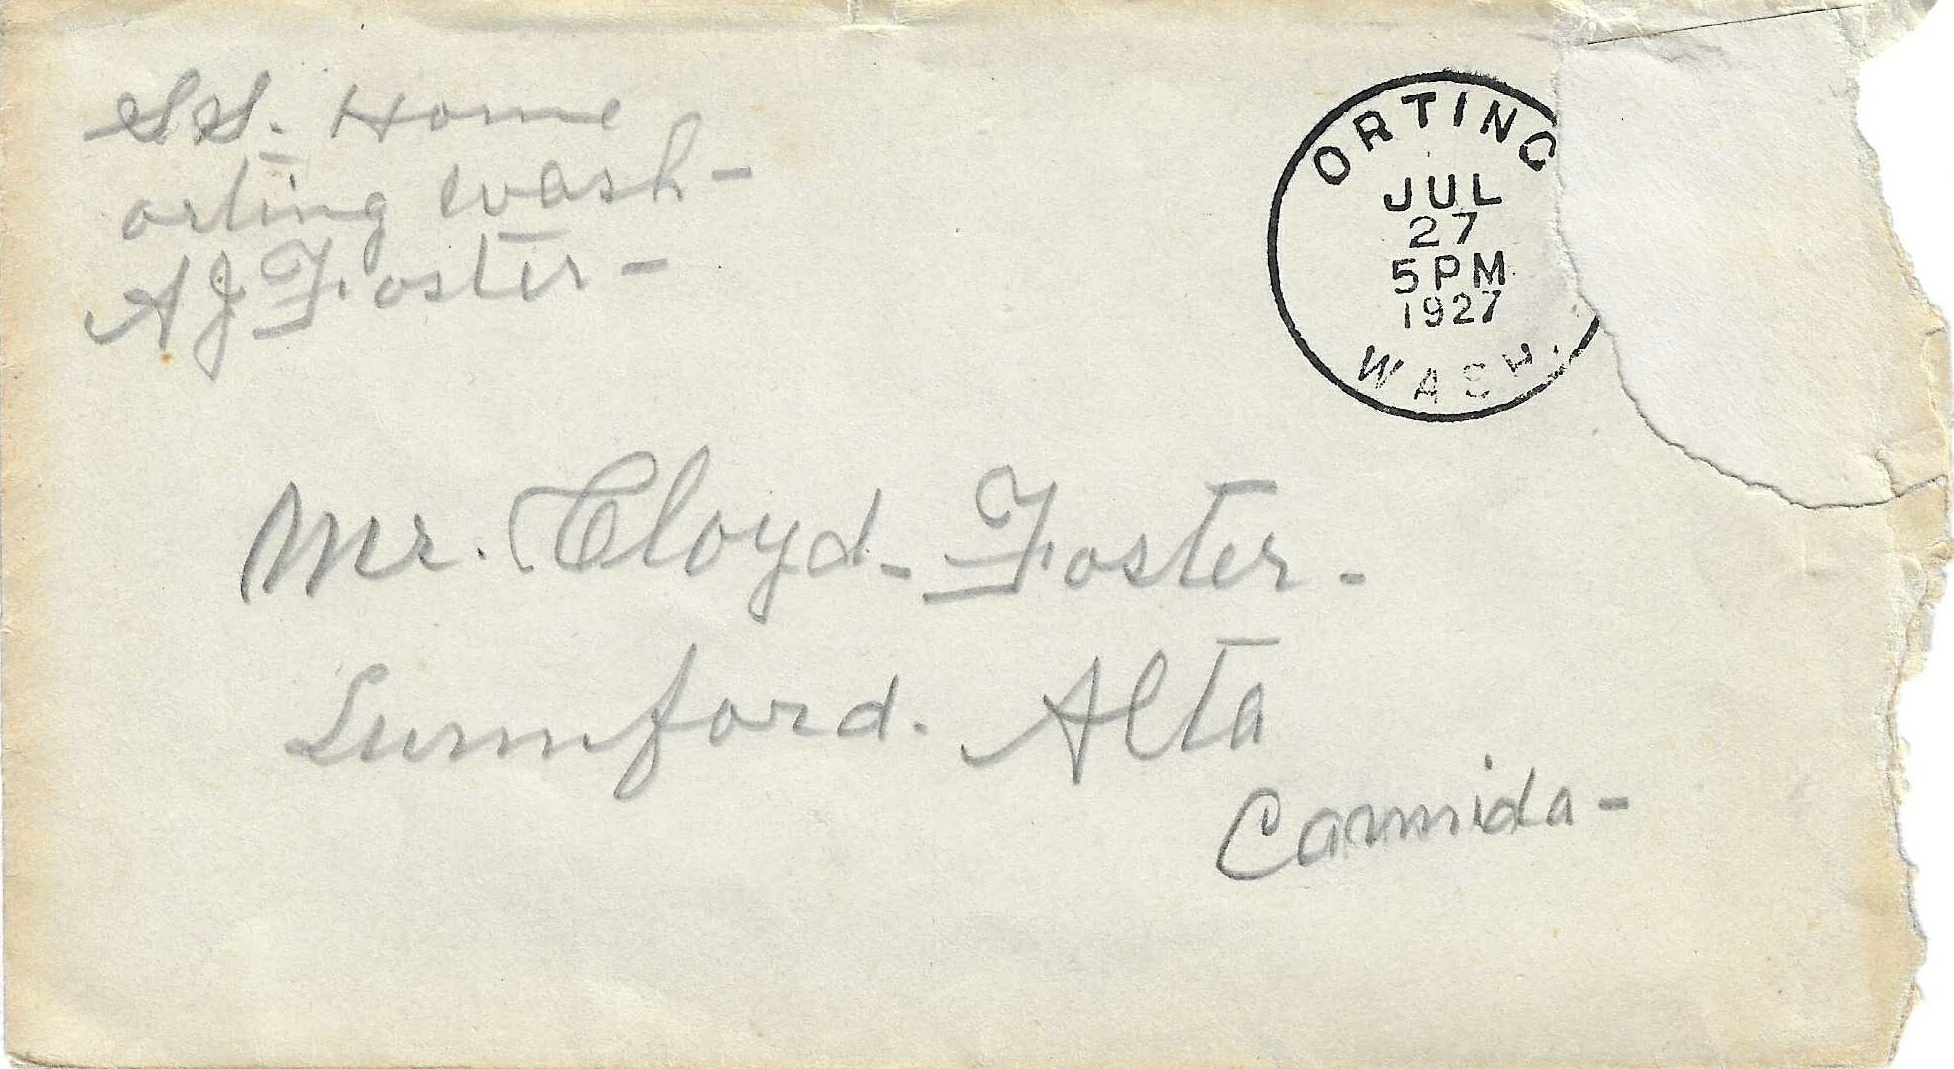 SS. Home
orting wash-
AJ Foster-
ORTING
JUL
27
5 PM
1927
WASH.
Mr. Cloyd- Foster-
Lumford. Alta
Cannida-